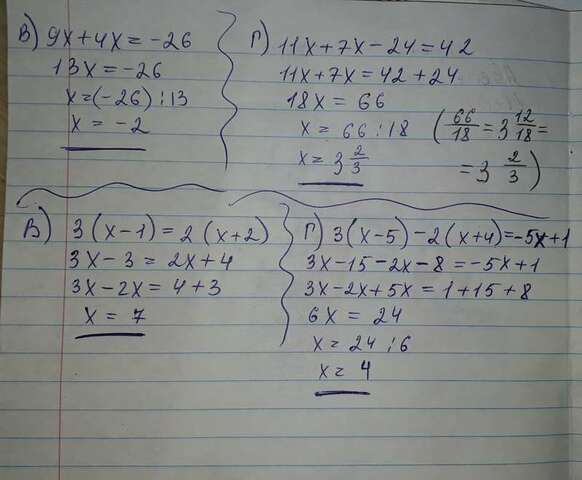 В) 9x+4x=-26
13x=-26
x=(-26):13
x = -2
Г) 11x+7x-24=42
11x+7x=42+24
18x = 66
x = 66:18 (66/18 = 3 12/18 =
x = 3 2/3 = 3 2/3)
В) 3(x-1)=2(x+2)
3x-3=2x+4
3x-2x=4+3
x = 7
Г) 3(x-5)-2(x+4)=-5x+1
3x-15-2x-8=-5x+1
3x-2x+5x=1+15+8
6x = 24
x = 24:6
x = 4